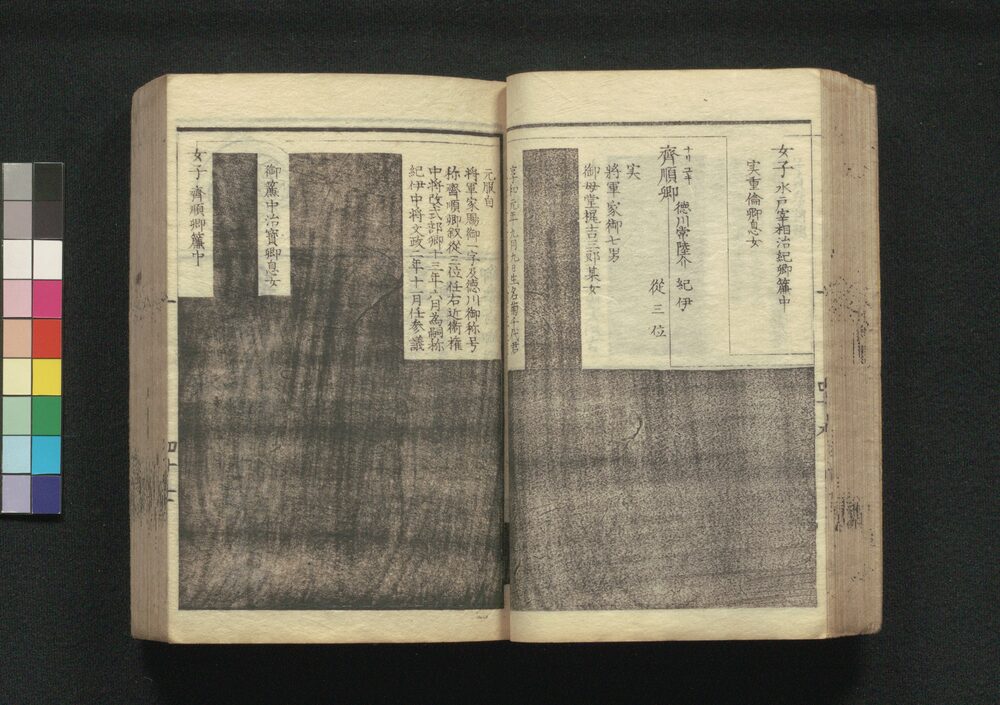 女子 水戸宰相治紀卿簾中
実重倫卿息女
齊順卿 徳川常陸介 紀伊
従三位
実
将軍家御七男
御母堂梶吉三郎某女
享和元年九月九日生名菊千代君
元服自
将軍家賜御一字及徳川御称号
称齊順卿叙従三位任右近衛権
中将改式部卿十三年六月為嗣称
紀伊中将文政二年十一月任参議
御簾中治寳卿息女
女子 齊順卿簾中